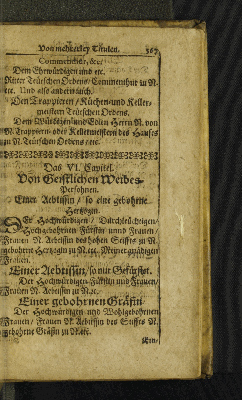 Von mancherley Titulen. 567
Commenthur, &c.
Dem Ehrwürdigen und etc.
Ritter Teutschen Ordens, Commenthur zu N.
etc. Und also anderwärth.
Den Trappierern / Küchen- und Keller-
meistern Teutschen Ordens.
Dem Würdigen und Edlen Herrn N. von
N. Trappiern- oder Kellermeistern des Hauses
zu N. Teutschen Ordens etc.
Das VI. Capitel.
Von Geistlichen Weibes-
Persohnen.
Einer Aebtissin / so eine gebohrne
Hertzogin.
Der Hochwürdigen / Durchleuchtigen /
Hochgebohrnen Fürstin unnd Frauen /
Frauen N. Aebtissin des hohen Stiffts zu N.
gebohrne Hertzogin zu N. etc. Meiner gnädigen
Frauen.
Einer Aebtissin / so nur Gefürstet.
Der Hochwürdigen Fürstin und Frauen /
Frauen N. Aebtissin zu N. etc.
Einer gebohrnen Gräfin.
Der Hochwürdigen und Wohlgebohrnen
Frauen / Frauen N. Aebtissin des Stiffts N.
gebohrne Gräfin zu N. etc.
Ein-